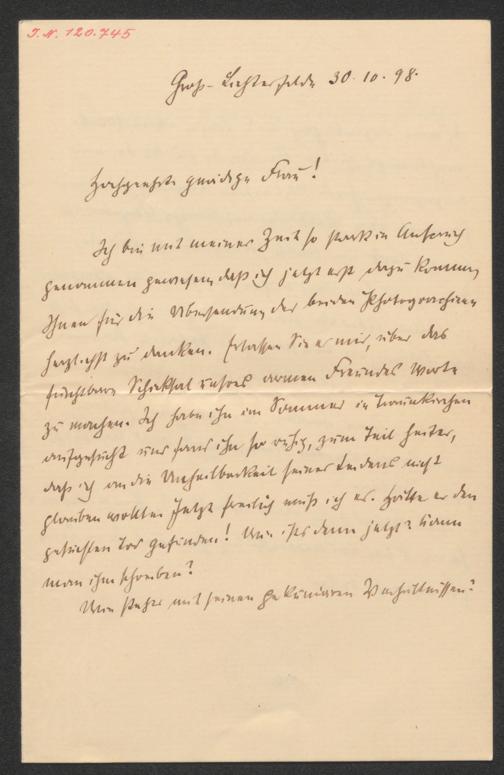 I.N. 120.745
Groß-Lichterfelde 30.10.98.
Hochgeehrte gnädige Frau!
Ich bin mit meiner Zeit so stark in Anspruch
genommen gewesen, daß ich jetzt erst dazu komme,
Ihnen für die Übersendung der beiden Photographieen
herzlichst zu danken. Erlassen Sie es mir, über das
furchtbare Schicksal unsres armen Freundes Worte
zu machen. Ich habe ihn im Sommer in Traunkirchen
aufgesucht und fand ihn so ruhig, zum Teil heiter,
daß ich an die Unheilbarkeit seines Leidens nicht
glauben wollte. Jetzt freilich muß ich es. Hätte er den
gesuchten Tod gefunden! Wie ist es denn jetzt? Kann
man ihm schreiben?
Wie steht es mit seinen pekuniären Verhältnissen?